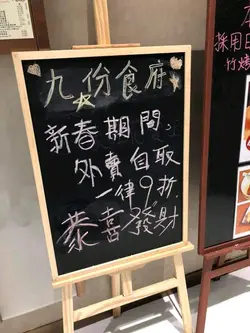 九份食府
新春期間,
外賣自取
一律9折
恭喜發財
採用日
竹烤